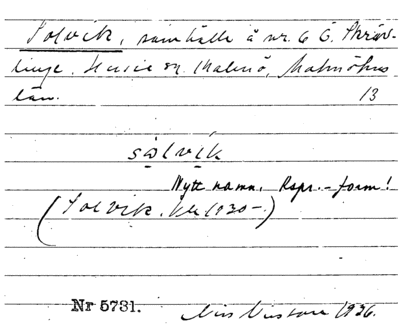 Solvik, samhälle å nr. 6 Ö. Skräv-
linge. Husie sn. Malmö, Malmöhus
län. 13
sɷlvik
Nytt namn. Rspr.-form!
(Solvik. 1930-)
Nr 5731.
Nils Nilsson 1936.